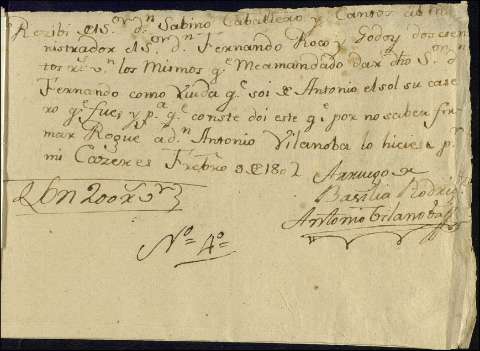 Recibi del Sor. dn. Sabino Caballero y Cantos Admi
nistrador del Sor. dn. Fernando Roco y Godoy doscien
tos rs. vn. los Mismos qe. Meamandado dar dho Sor. dn.
Fernando como Viuda qe. soi de Antonio el sol su case
ro qe. fue; y pa. qe. conste doi este qe. por no saber fir
mar Rogue a dn. Antonio Vilanoba lo hiciese pr.
mi Cazeres Frebro 9 de 1802
Arruego de
Basilia Rodrig
Antonio Vilanoba
Son 200 rs. vn.
No. 4o.